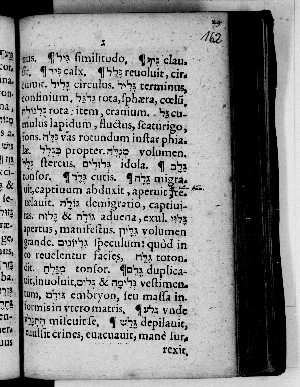 162
2
nus. גִּיל similitudo, ¶ גִּיף clau-
sit. גִּיר calx. גָּלַל reuoluit, cir-
cuiuit. גָּלִיל circulus. גְּלִיל terminus,
confinium. גַּלְגַּל rota, sphæra, cœlũ,
גֻּלְגֹּלֶת rota: item, cranium. גַּל cu-
mulus lapidum, fluctus, scaturigo,
fons. גֻּלָּה vas rotundum instar phia-
læ. בִּגְלַל propter. מְגִלָּה volumen.
גָּלָל stercus. גִּלּוּלִים idola. ¶ גַּלָּב
tonsor. ¶ גֶּלֶד cutis. ¶ גָּלָה migra-
uit, captiuum abduxit, aperuit,
reuelauit. גָּלוּת demigratio, captiui-
tas. גּוֹלָה & גָּלָה aduena, exul. גָּלוּי
apertus, manifestus. גִּלָּיוֹן volumen
grande. גִּלְיוֹנִים speculum: quòd in
eo reuelentur facies, גָּלַח toton-
dit. מְגַלֵּחַ tonsor. ¶ גָּלַם duplica-
uit, inuoluit, גְּלוֹם & גְּלִימָה vestimen-
tum. גֹּלֶם embryon, seu massa in-
formis in vtero matris. ¶ גָּלַע vnde
הִתְגַּלַּע miscuit se, ¶ גָּלַשׁ depilauit,
euulsit crines, euacuauit, manè sur-
rexit,